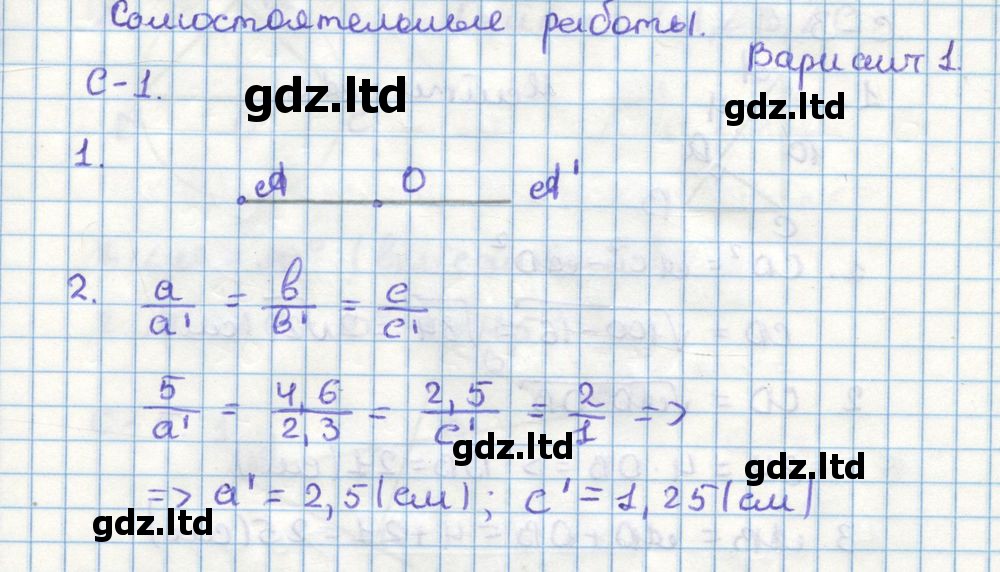 Самостоятельные работы.
Вариант 1.
С-1.
gdz.ltd
gdz.ltd
1.
A O A'
2. a/a' = b/b' = c/c'
5/a' = 4,6/2,3 = 2,5/c' = 2/1 =>
gdz.ltd
gdz.ltd
=> a' = 2,5 (см); c' = 1,25 (см)
gdz.ltd